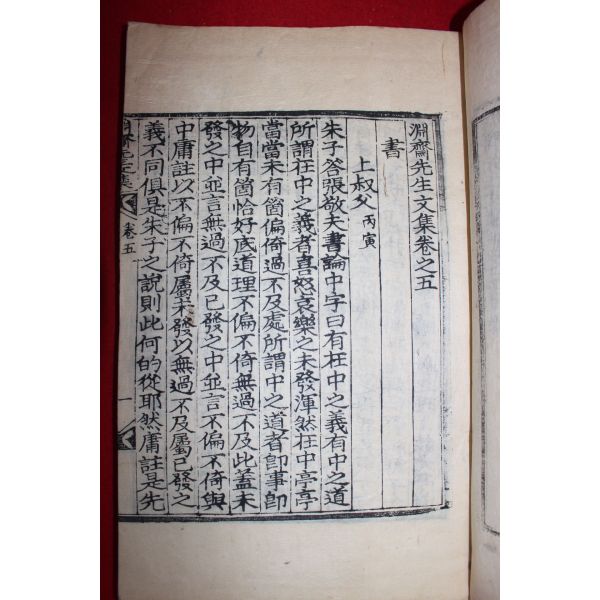 淵齋先生文集卷之五
書
上叔父 丙寅
朱子答張敬夫書論中字曰有在中之義有中之道
所謂在中之義者喜怒哀樂之未發渾然在中亭亭
當當未有箇偏倚過不及處所謂中之道者卽事卽
物自有箇恰好底道理不偏不倚無過不及此蓋未
發之中並言無過不及已發之中並言不偏不倚與
中庸註以不偏不倚屬未發以無過不及屬已發之
義不同俱是朱子之說則此何的從耶然庸註是先
卷五
一